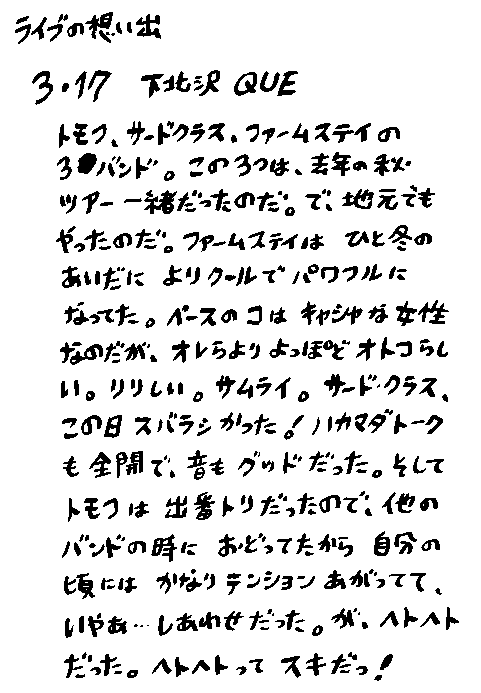 ライブの想い出
3・17 下北沢 QUE
トモフ、サードクラス、ファームステイの
3バンド。この3つは、去年の秋
ツアー一緒だったのだ。で、地元でも
やったのだ。ファームステイは ひと冬の
あいだに よりクールで パワフルに
なってた。ベースのコは キャシャな女性
なのだが、オレらより よっぽど オトコらし
い。りりしい。サムライ。サード・クラス、
この日 スバラシかった！ハカマダトーク
も 全開で、音も グッドだった。そして
トモフは 出番トリだったので、他の
バンドの時に おどってたから 自分の
頃には かなり テンション あがってて、
いやぁ…しあわせだった。が、ヘトヘト
だった。ヘトヘトって スキだっ！